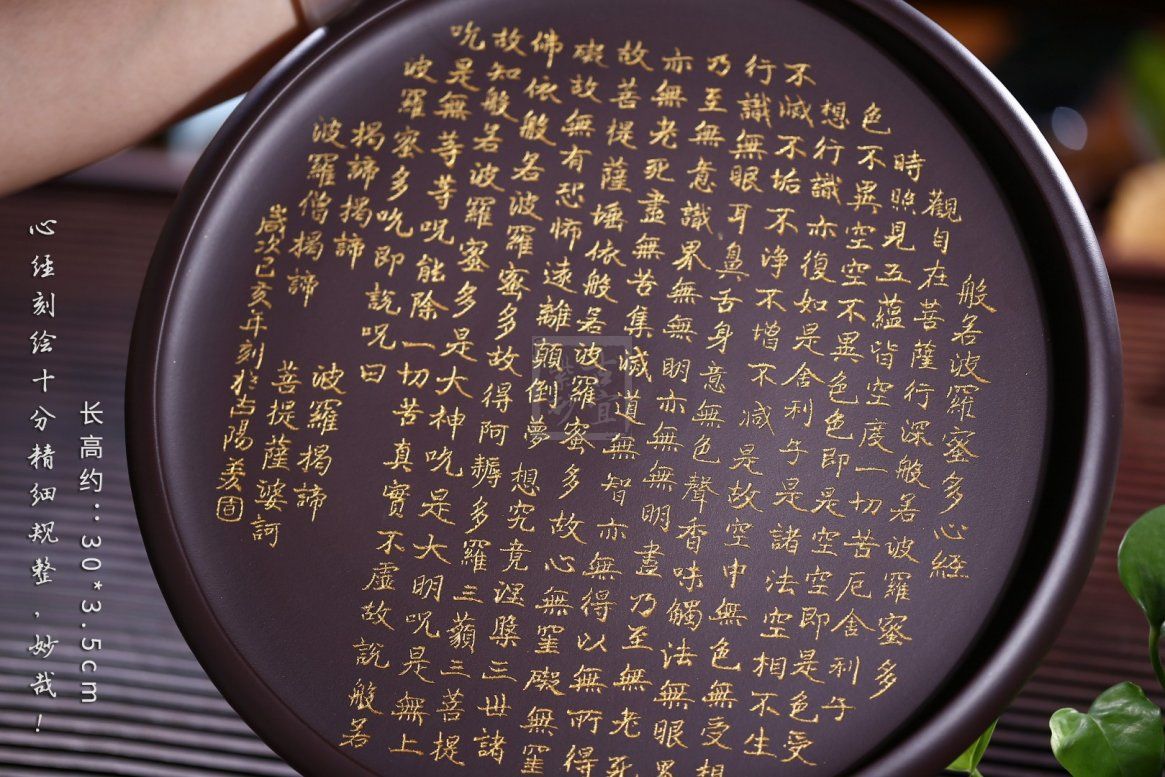 般若波羅蜜多心經
觀自在菩薩行深般若波羅蜜多
時照見五蘊皆空度一切苦厄舍利子
色不異空空不異色色即是空空即是色受
想行識亦復如是舍利子是諸法空相不生
不滅不垢不净不增不減是故空中無色無受想
行識無眼耳鼻舌身意無色聲香味觸法無眼界
乃至無意識界無無明亦無無明盡乃至無老死
亦無老死盡無苦集滅道無智亦無得以無所得
故菩提薩埵依般若波羅蜜多故心無罣礙無罣
礙故無有恐怖遠離顛倒夢想究竟涅槃三世諸
佛依般若波羅蜜多故得阿耨多羅三藐三菩提
故知般若波羅蜜多是大神呪是大明呪是無上
呪是無等等呪能除一切苦真實不虛故說般若
波羅蜜多呪即說呪曰
揭諦揭諦 波羅揭諦
波羅僧揭諦 菩提薩婆訶
歲次己亥年刻於古陽羨
长高约：30*3.5cm
心经刻绘十分精细规整，妙哉！